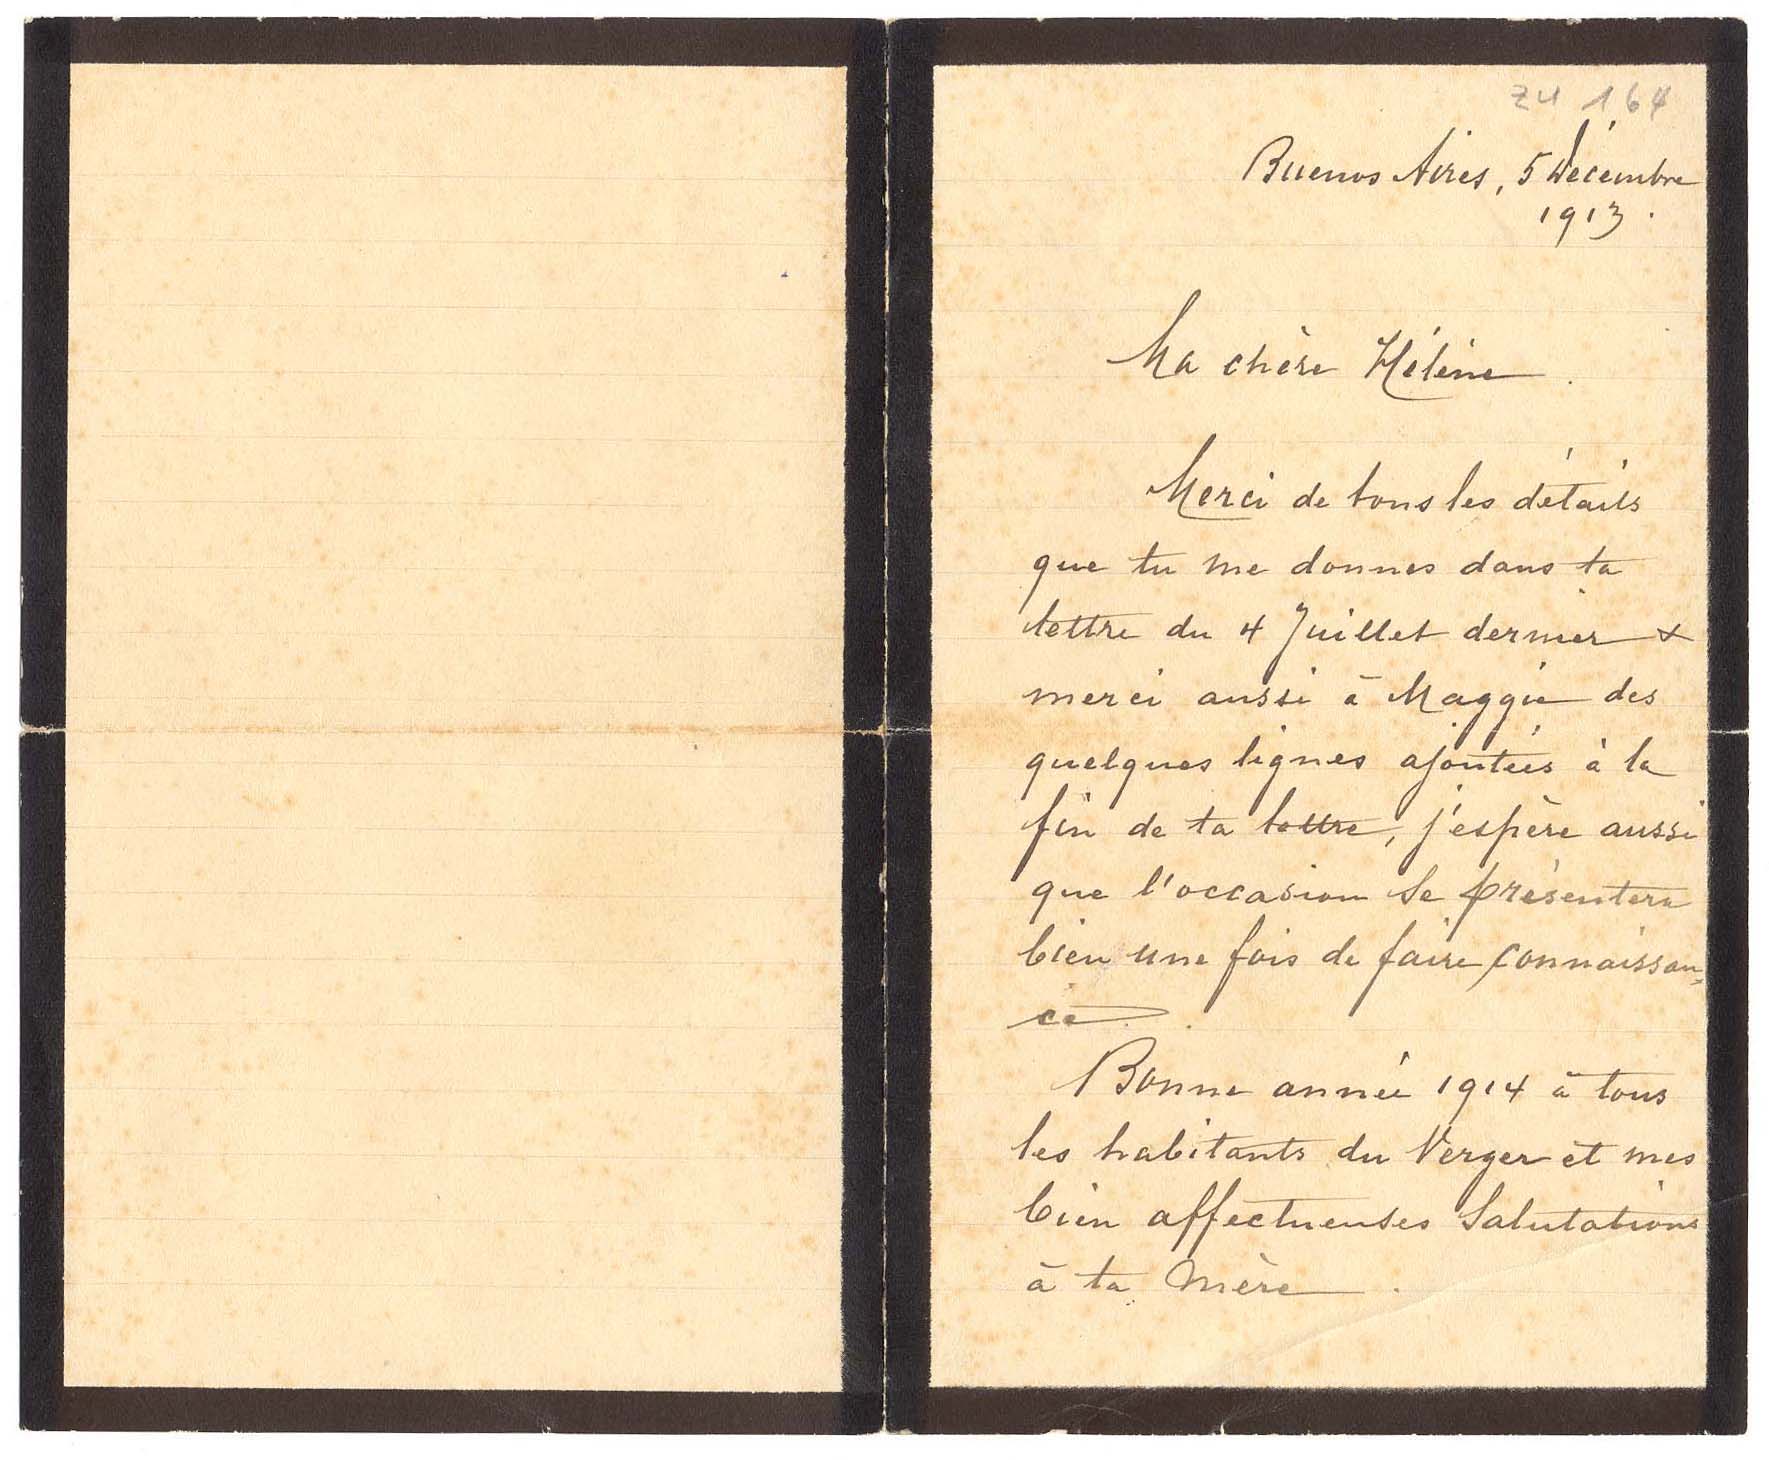 ZU 164
Buenos Aires, 5 Décembre
1913.
Ma chère Hélène.
Merci de tous les détails
que tu me donnes dans ta
lettre du 4 Juillet dernier &
merci aussi à Maggie des
quelques lignes ajoutées à la
fin de ta lettre, j'espère aussi
que l'occasion se présentera
bien une fois de faire connaissan-
ce.
Bonne année 1914 à tous
les habitants du Verger et mes
bien affectueuses salutations
à ta Mère.